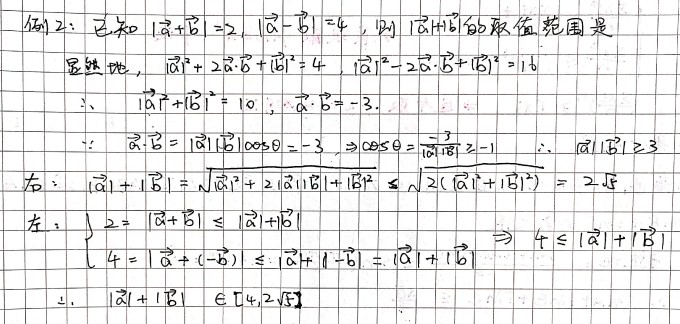 例2: 已知 |a⃗+b⃗|=2, |a⃗-b⃗|=4, 则 |a⃗|+|b⃗|的取值范围是
显然地, |a⃗|²+2a⃗·b⃗+|b⃗|²=4, |a⃗|²-2a⃗·b⃗+|b⃗|²=16
∴ |a⃗|²+|b⃗|²=10, a⃗·b⃗=-3.
∵ a⃗·b⃗=|a⃗||b⃗|cosθ=-3 ⇒cosθ=-3/(|a⃗||b⃗|)≥-1 ∴ |a⃗||b⃗|≥3
右: |a⃗|+|b⃗|=√(|a⃗|²+2|a⃗||b⃗|+|b⃗|²) ≤ √(2(|a⃗|²+|b⃗|²)) = 2√5
左: { 2=|a⃗+b⃗| ≤ |a⃗|+|b⃗|
4=|a⃗+(-b⃗)| ≤ |a⃗|+|-b⃗|=|a⃗|+|b⃗| ⇒ 4≤|a⃗|+|b⃗|
∴ |a⃗|+|b⃗| ∈[4,2√5]